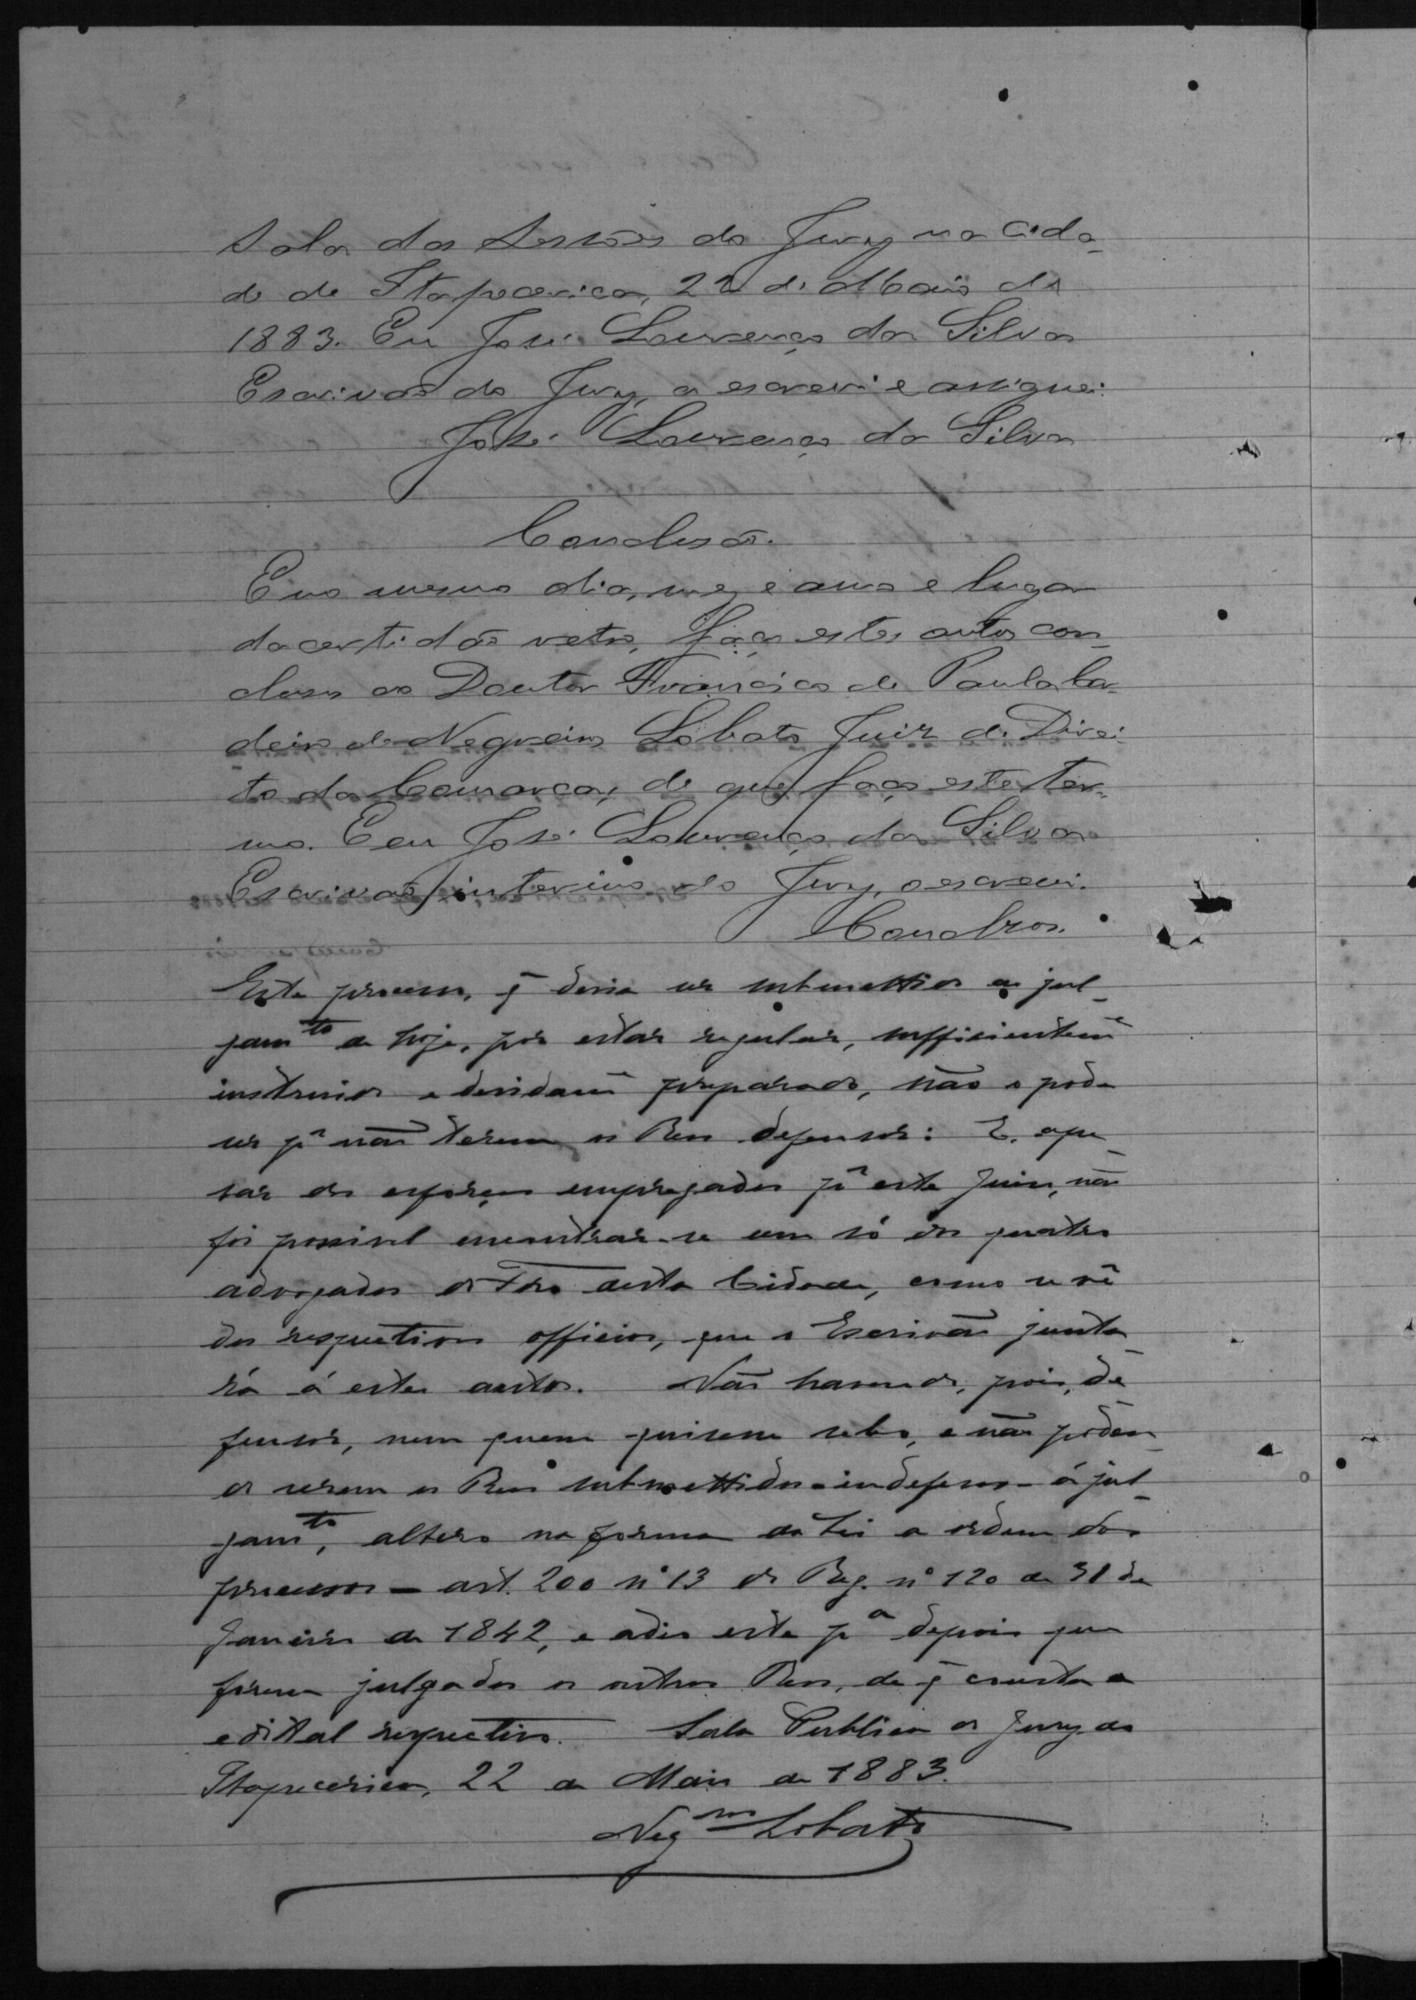 Sala das Sessões do Jury na Cida-
de de Itapecerica, 22 de Maio de
1883. Eu José Lourenço da Silva
Escrivão do Jury, o escrevi e assignei.
José Lourenço da Silva
Conclusão.
E no mesmo dia, mez e anno e lugar
da certidão retro, faço estes autos con-
clusos ao Doutor Francisco de Paula Cor-
deiro de Negreiros Lobato Juiz de Direi-
to da Comarca, de que faço este ter-
mo. E eu José Lourenço da Silva
Escrivão interino do Jury, o escrevi.
Conclzos.
Este processo, q̃ devia ser submettido a jul-
gamto de hoje, por estar regular, sufficienteme
instruido e devidame preparado, não o pode
ser pr não terem os Reos defensor: E, ape-
sar dos esforços empregados pr este Juizo, não
foi possivel encontrar-se um só dos quatro
advogados do Foro desta Cidade, como se vê
dos respectivos officios, que o Escrivão junta-
rá á estes autos. Não havendo, pois, de-
fensor, nem quem quizesse sel-o, e não poden-
do serem os Reos submettidos-indefesos-á jul-
gamto, altero na forma da Lei a ordem dos
processos — art. 200 nº 13 do Reg. nº 120 de 31 de
Janeiro de 1842, e adio este pa depois que
forem julgados os outros Reos, de q̃ consta o
edital respectivo. Sala Publica do Jury da
Itapecerica, 22 de Maio de 1883.
Negros Lobato